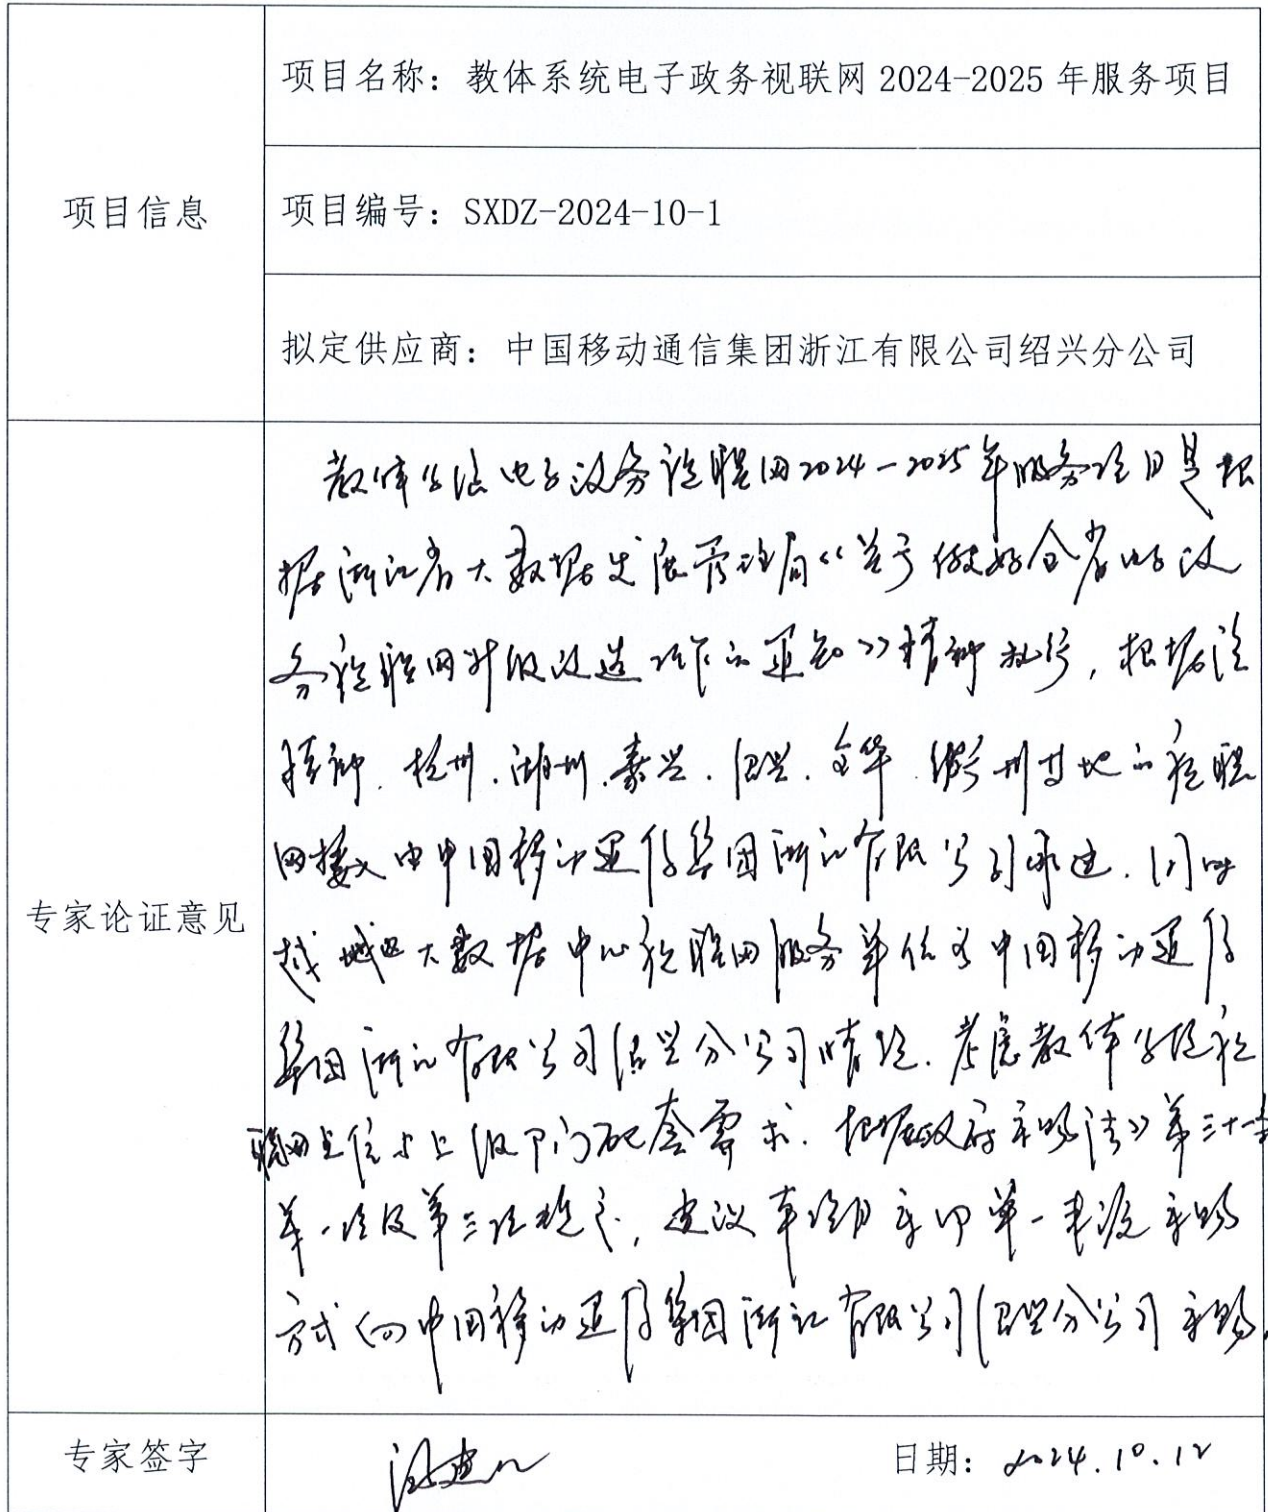 项目信息
项目名称：教体系统电子政务视联网 2024-2025 年服务项目
项目编号：SXDZ-2024-10-1
拟定供应商：中国移动通信集团浙江有限公司绍兴分公司
专家论证意见
教体系统电子政务视联网2024-2025年服务项目是根
据浙江省大数据发展管理局《关于做好全省电子政
务视联网升级改造工作的通知》精神执行，根据该
精神．杭州．湖州．嘉兴．绍兴．金华．衢州等地的视联
网接入由中国移动通信集团浙江有限公司承建．同时
越城区大数据中心视联网服务单位为中国移动通信
集团浙江有限公司绍兴分公司情况．考虑教体系统视
联网点位与上级部门配套需求．根据《政府采购法》第三十一条
第一项及第三项规定，建议本项目采用单一来源采购
方式向中国移动通信集团浙江有限公司绍兴分公司采购.
专家签字
日期：2024.10.12